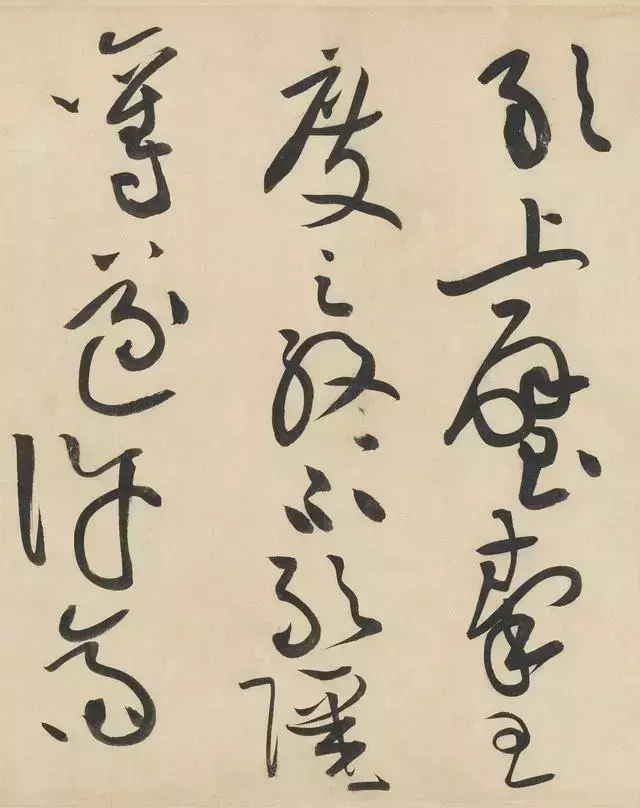 敢上璧秦王
度之終不敢彊
奪遂許齋